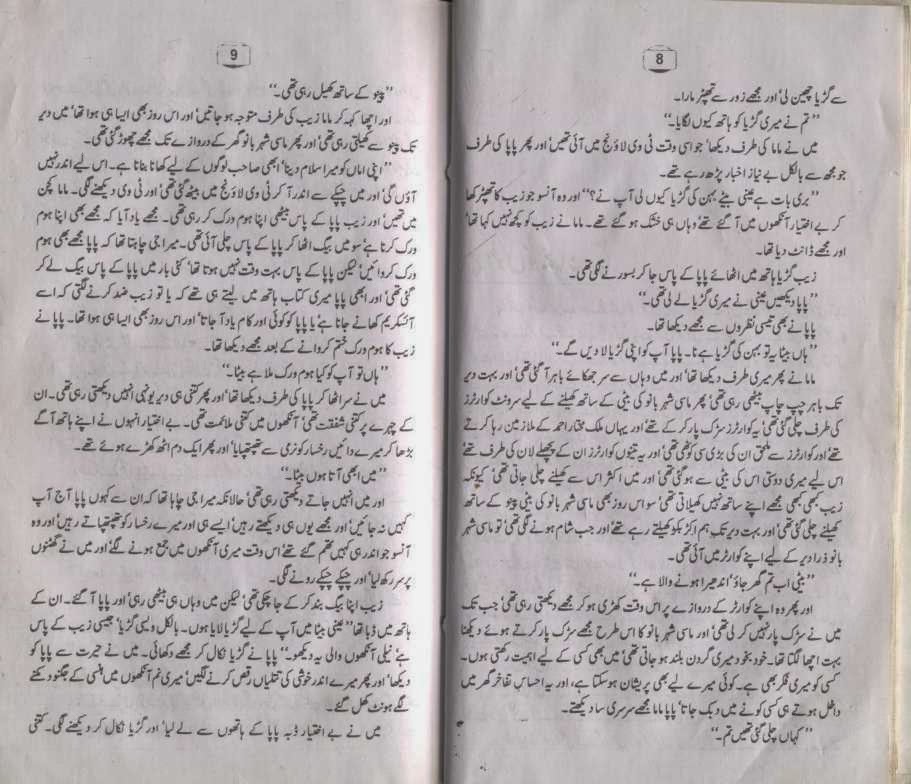 8
سے گڑیا چھین لی' اور مجھے زور سے تھپڑ مارا۔
"تم نے میری گڑیا کو ہاتھ کیوں لگایا۔"
میں نے ماما کی طرف دیکھا' جو اسی وقت ٹی وی لاؤنج میں آئی تھیں' اور پھر پاپا کی طرف
جو مجھ سے بالکل بے نیاز اخبار پڑھ رہے تھے۔
"بری بات ہے عینی بیٹے بہن کی گڑیا کیوں لی آپ نے؟" اور وہ آنسو جو زیب کا تھپڑ کھا
کر بے اختیار آنکھوں میں آ گئے تھے' وہاں ہی خشک ہو گئے تھے۔ ماما نے زیب کو کچھ نہیں کہا تھا'
اور مجھے ڈانٹ دیا تھا۔
زیب گڑیا ہاتھ میں اٹھائے پاپا کے پاس جا کر بسورنے لگی تھی۔
"پاپا دیکھیں عینی نے میری گڑیا لے لی تھی۔"
پاپا نے بھی تیسی نظروں سے مجھے دیکھا تھا۔
"ہاں بیٹا یہ تو بہن کی گڑیا ہے نا۔ پاپا آپ کو اپنی گڑیا لا دیں گے۔"
ماما نے پھر میری طرف دیکھا تھا' اور میں وہاں سے سر جھکائے باہر آ گئی تھی' اور بہت دیر
تک باہر چپ چاپ بیٹھی رہی تھی' پھر ماسی شہر بانو کی بیٹی کے ساتھ کھیلنے کے لیے سرونٹ کوارٹرز
کی طرف چلی گئی تھی' یہ کوارٹرز سڑک پار کر کے تھے' اور یہاں ملک مختار احمد کے ملازمین رہا کرتے
تھے' اور کوارٹرز سے ملحق ان کی بڑی سی کوٹھی تھی' اور یہ تینوں کوارٹرز ان کے پچھلے لان کی طرف تھے'
اس لیے میری دوستی اس کی بیٹی سے ہو گئی تھی' اور میں اکثر اس سے کھیلنے چلی جاتی تھی' کیونکہ
زیب کبھی کبھی مجھے اپنے ساتھ نہیں کھیلاتی تھی' سو اس روز بھی ماسی شہر بانو کی بیٹی پینو کے ساتھ
کھیلنے چلی گئی تھی' اور بہت دیر تک ہم اکڑ بکڑ کھیلتے رہے تھے' اور جب شام ہونے لگی تھی' تو ماسی شہر
بانو ذرا دیر کے لیے اپنے کوارٹر میں آئی تھی۔
"بیٹی اب تم گھر جاؤ' اندھیرا ہونے والا ہے۔"
اور پھر وہ اپنے کوارٹر کے دروازے پر اس وقت کھڑی ہو کر مجھے دیکھتی رہی تھی' جب تک
میں نے سڑک پار نہیں کر لی تھی' اور ماسی شہر بانو کا اس طرح مجھے سڑک پار کرتے ہوئے دیکھنا
بہت اچھا لگتا تھا۔ خود بخود میری گردن بلند ہو جاتی تھی' میں بھی کسی کے لیے اہمیت رکھتی ہوں۔
کسی کو میری فکر بھی ہے۔ کوئی میرے لیے بھی پریشان ہو سکتا ہے، اور یہ احساس تفاخر گھر میں
داخل ہوتے ہی کسی کونے میں دبک جاتا' پاپا ماما مجھے سرسری سا دیکھتے۔
"کہاں چلی گئی تھیں تم۔"
9
"پینو کے ساتھ کھیل رہی تھی۔"
اور اچھا کہہ کر ماما زیب کی طرف متوجہ ہو جاتیں' اور اس روز بھی ایسا ہی ہوا تھا' میں دیر
تک پینو سے کھیلتی رہی تھی' اور پھر ماسی شہر بانو گھر کے دروازے تک مجھے چھوڑ گئی تھی۔
"اپنی اماں کو میرا سلام دینا' ابھی صاحب لوگوں کے لیے کھانا بنانا ہے۔ اس لیے اندر نہیں
آؤں گی' اور میں چپکے سے اندر آ کر ٹی وی لاؤنج میں بیٹھ گئی تھی' اور ٹی وی دیکھنے لگی۔ ماما کچن
میں تھیں' اور زیب پاپا کے پاس بیٹھی اپنا ہوم ورک کر رہی تھی۔ مجھے یاد آیا کہ مجھے بھی اپنا ہوم
ورک کرنا ہے' سو میں بیگ اٹھا کر پاپا کے پاس چلی آئی تھی۔ میرا جی چاہتا تھا کہ پاپا مجھے بھی ہوم
ورک کروائیں' لیکن پاپا کے پاس بہت وقت نہیں ہوتا تھا' کئی بار میں پاپا کے پاس بیگ لے کر
گئی تھی' اور ابھی پاپا میری کتاب ہاتھ میں لیتے ہی تھے کہ یا تو زیب ضد کرنے لگتی کہ اسے
آئسکریم کھانے جانا ہے' یا پاپا کو کوئی اور کام یاد آ جاتا' اور اس روز بھی ایسا ہی ہوا تھا۔ پاپا نے
زیب کا ہوم ورک ختم کروانے کے بعد مجھے دیکھا تھا۔
"ہاں تو آپ کو کیا ہوم ورک ملا ہے بیٹا۔"
میں نے سر اٹھا کر پاپا کی طرف دیکھا تھا' اور پھر کتنی ہی دیر یونہی انہیں دیکھتی رہی تھی۔ ان
کے چہرے پر کتنی شفقت تھی' آنکھوں میں کتنی ملائمت تھی۔ بے اختیار انہوں نے اپنے ہاتھ آگے
بڑھا کر میرے دائیں رخسار کو نرمی سے تھپتھپایا' اور پھر ایک دم اٹھ کھڑے ہوئے تھے۔
"میں ابھی آتا ہوں بیٹا۔"
اور میں انہیں جاتے دیکھتی رہی تھی' حالانکہ میرا جی چاہا تھا کہ ان سے کہوں پاپا آج آپ
کہیں نہ جائیں' اور مجھے یوں ہی دیکھتے رہیں' ایسے ہی اور میرے رخسار کو تھپتھپاتے رہیں' اور وہ
آنسو جو اندر ہی کہیں تھم گئے تھے' اس وقت میری آنکھوں میں جمع ہونے لگے' اور میں نے گھٹنوں
پر سر رکھ لیا' اور چپکے چپکے رونے لگی۔
زیب اپنا بیگ بند کر کے جا چکی تھی' لیکن میں وہاں ہی بیٹھی رہی' اور پاپا آ گئے۔ ان کے
ہاتھ میں ڈبا تھا' "عینی بیٹا میں آپ کے لیے گڑیا لایا ہوں۔ بالکل ویسی گڑیا' جیسی زیب کے پاس
ہے' نیلی آنکھوں والی یہ دیکھو۔" پاپا نے گڑیا نکال کر مجھے دکھائی۔ میں نے حیرت سے پاپا کو
دیکھا' اور پھر میرے اندر خوشی کی تتلیاں رقص کرنے لگیں' میری نم آنکھوں میں ہنسی کے جگنو دمکنے
لگے' ہونٹ کھل گئے۔
میں نے بے اختیار ڈبہ پاپا کے ہاتھوں سے لے لیا' اور گڑیا نکال کر دیکھنے لگی۔ کتنی